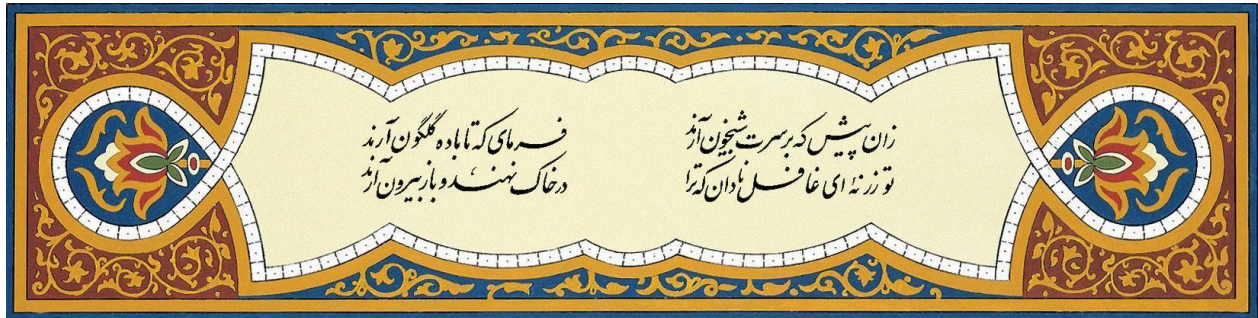 زان پیش که برسرت شبیخون آرند
فرمای که تا باده گلگون آرند
تو زر نهٔ ای غافل نادان که ترا
درخاک نهند و باز بیرون آرند